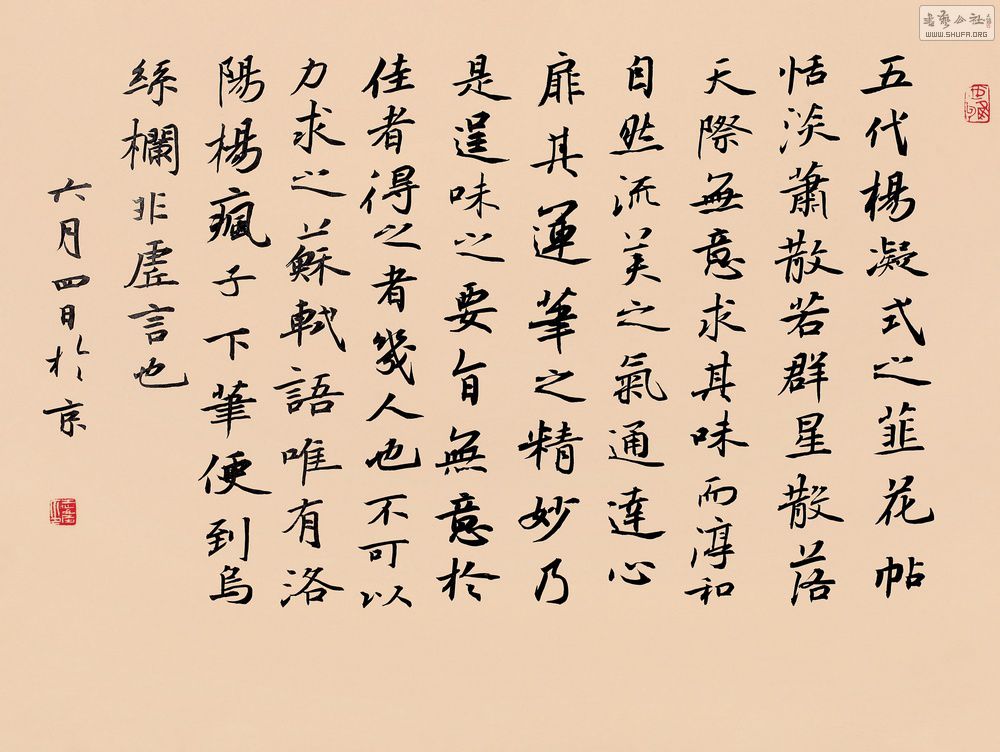 五代楊凝式之韮花帖
恬淡蕭散若群星散落
天際無意求其味而淳和
自然流美之氣通達心
扉其運筆之精妙乃
是逞味之要旨無意於
佳者得之者幾人也不可以
力求之蘇軾語唯有洛
陽楊瘋子下筆便到烏
絲欄非虛言也
六月四日於京
WWW.SHUFA.ORG